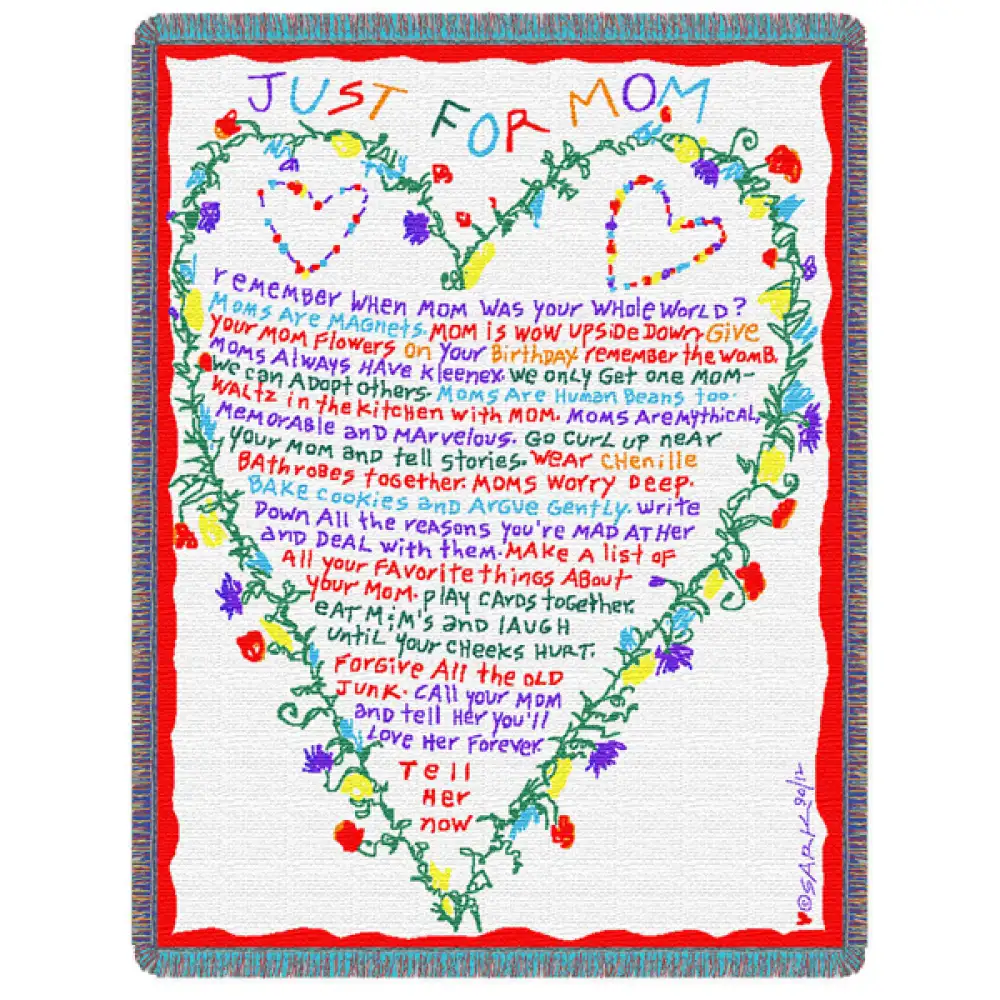 JUST FOR MOM
remember when mom was your whole world?
Moms are magnets. Mom is wow upside down. Give
your mom flowers on your Birthday. remember the womb.
Moms always have Kleenex. We only get one mom-
we can adopt others. Moms are Human Beans too.
Waltz in the kitchen with mom. Moms are mythical,
memorable and marvelous. Go curl up near
your mom and tell stories. Wear chenille
Bathrobes together. Moms worry deep.
Bake cookies and argue gently. Write
down all the reasons you're mad at her
and deal with them. Make a list of
all your favorite things about
your mom. Play cards together.
eat M;M's and laugh
until your cheeks hurt.
Forgive all the old
junk. Call your mom
and tell her you'll
love her forever.
Tell
Her
now
©SARK 90/12